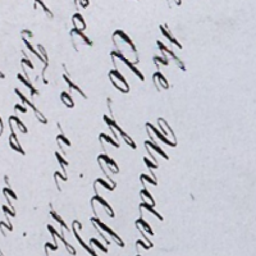 the Under
do hereby
ed to in th
Tithes in